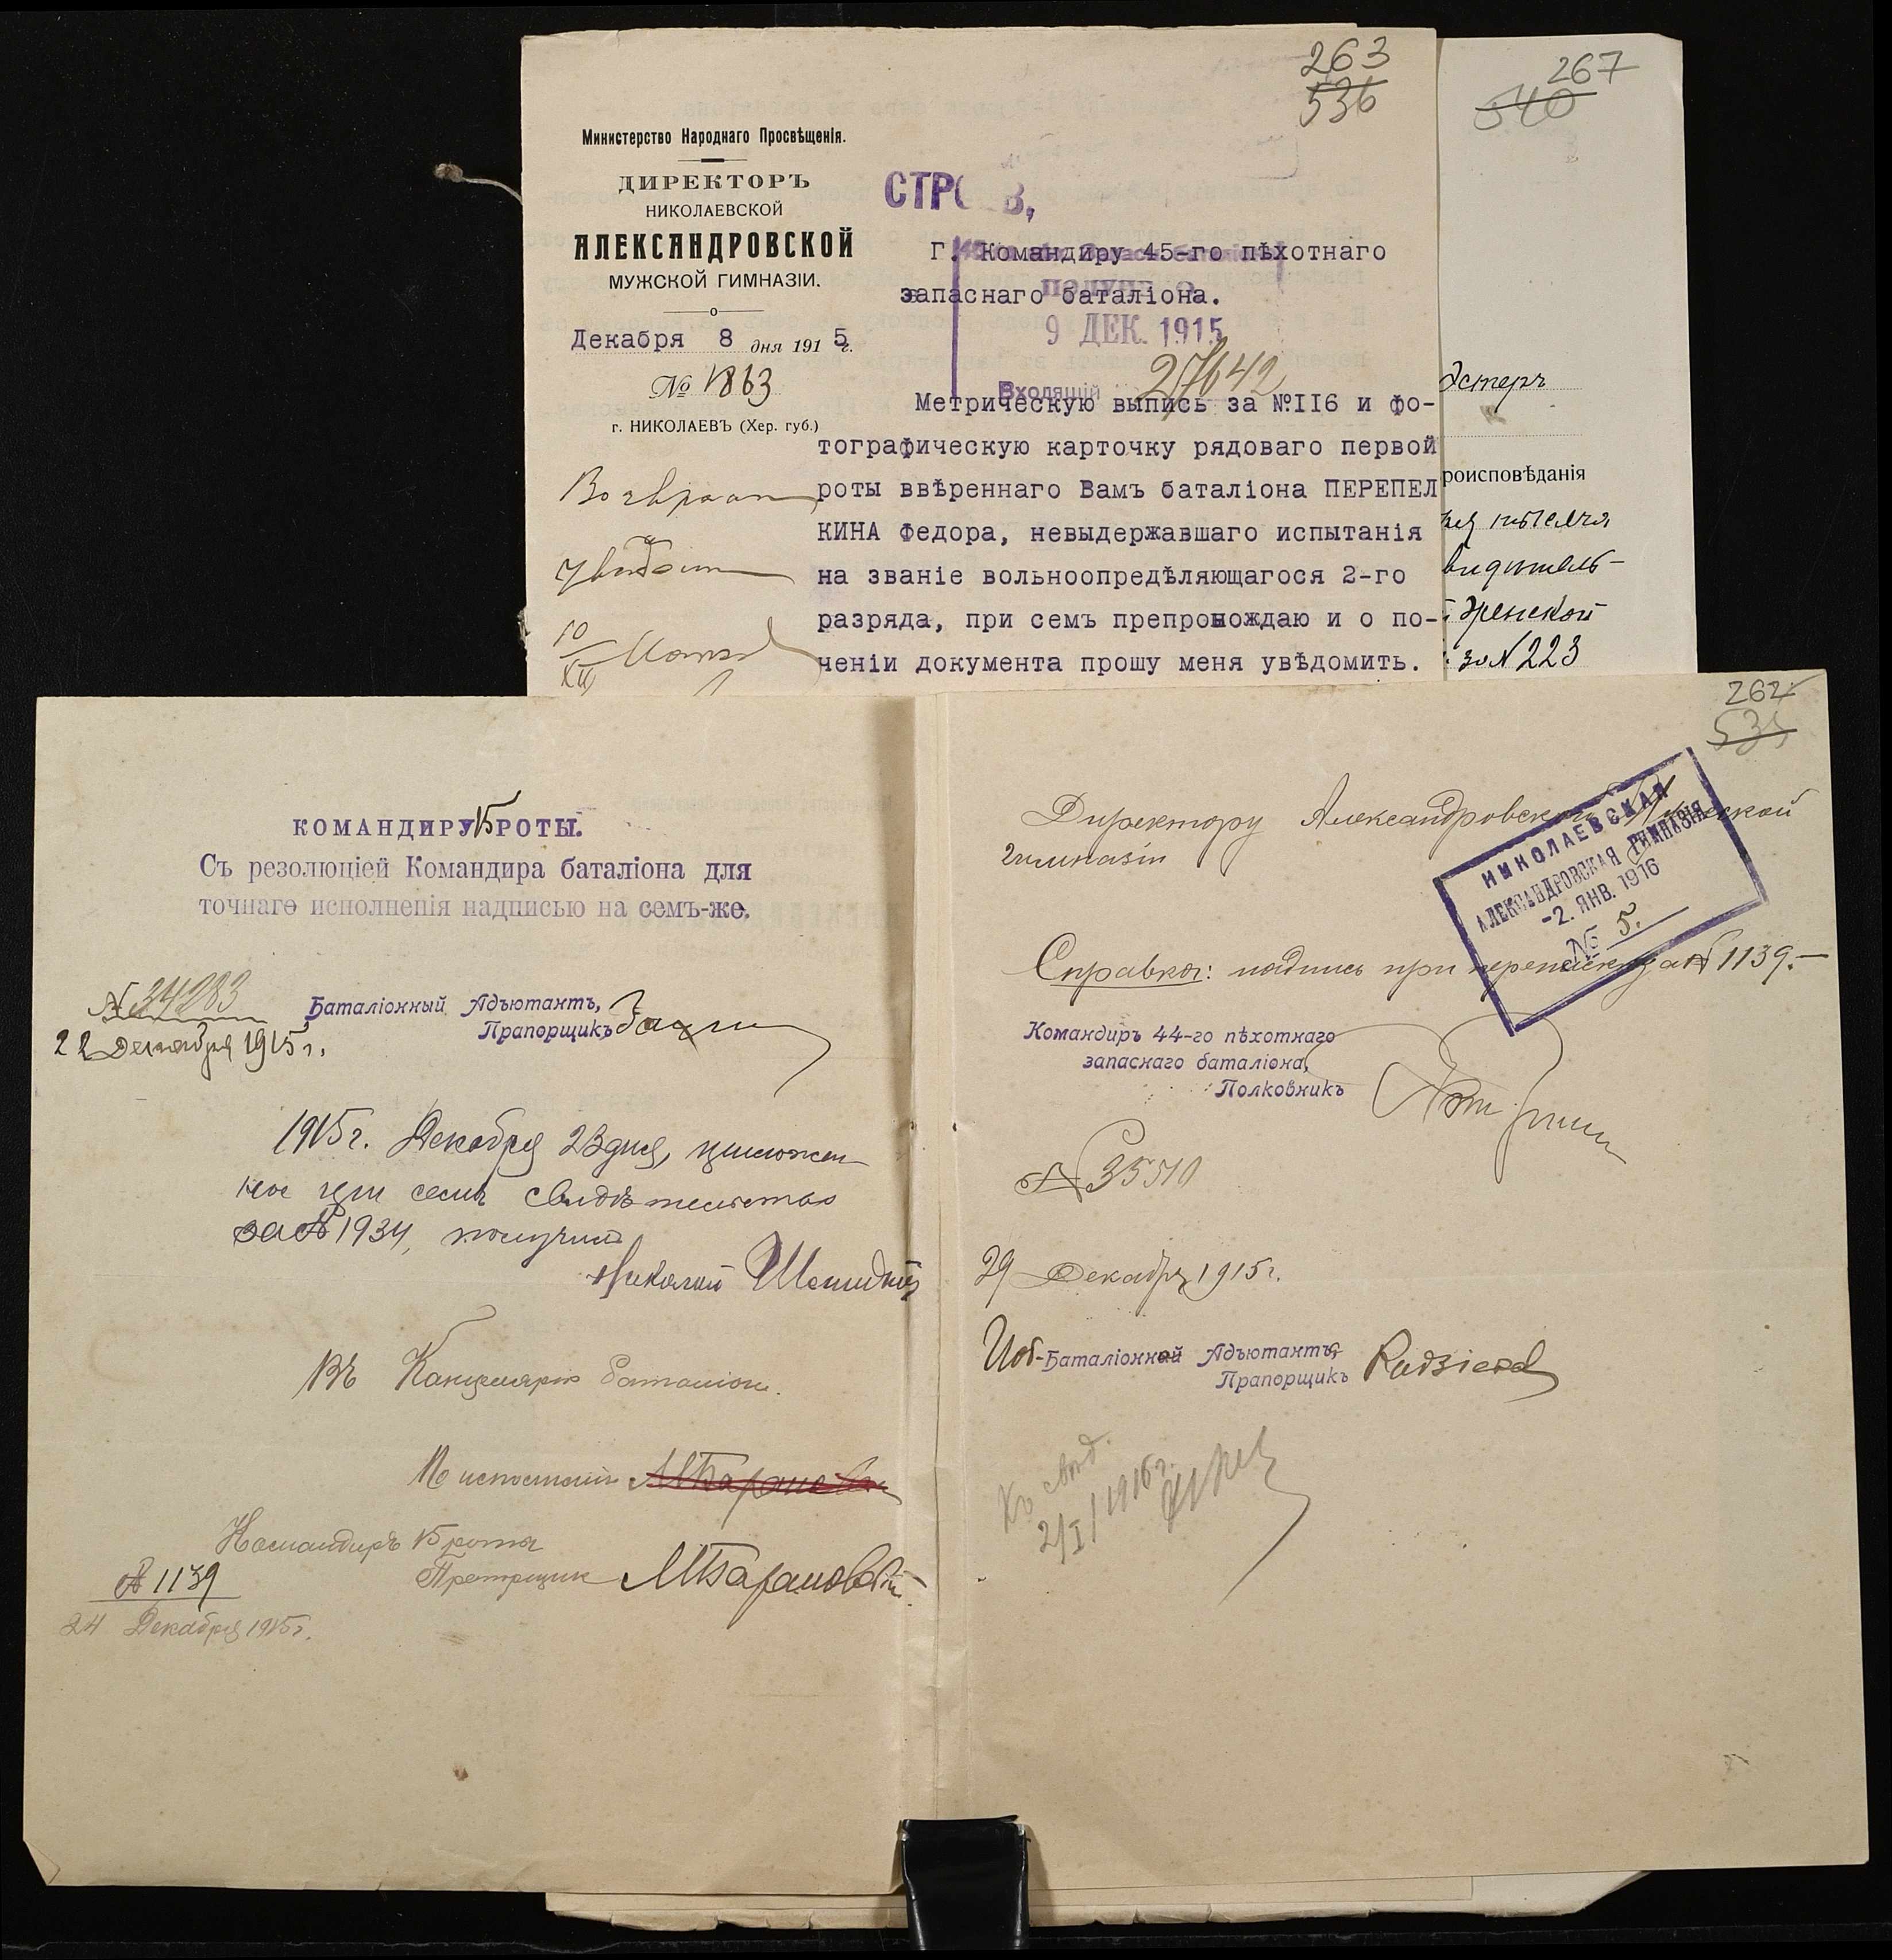 263
536
267
540
Министерство Народнаго Просвѣщенія.
ДИРЕКТОРЪ
НИКОЛАЕВСКОЙ
АЛЕКСАНДРОВСКОЙ
МУЖСКОЙ ГИМНАЗІИ.
Декабря 8 дня 1915 г.
№ 1863
г. НИКОЛАЕВЪ (Хер. губ.)
Г. Командиру 45-го пѣхотнаго
запаснаго баталіона.
9 ДЕК. 1915
Входящій 27642
Метрическую выпись за №II6 и фо-
тографическую карточку рядоваго первой
роты ввѣреннаго Вамъ баталіона ПЕРЕПЕЛ
КИНА Федора, невыдержавшаго испытанія
на званіе вольноопредѣляющагося 2-го
разряда, при семъ препровождаю и о по-
ченіи документа прошу меня увѣдомить.
10
XII
Эстеръ
роисповѣданія
видѣтель-
за № 223
262
535
КОМАНДИРУ 15 РОТЫ.
Съ резолюціей Командира баталіона для
точнаго исполненія надписью на семъ-же.
№ 34283
22 Декабря 1915 г.
Баталіонный Адъютантъ,
Прапорщикъ
1915 г. Декабря 23 дня, приложен
ное при семъ свидѣтельство
за № 1934, получилъ
Николай
Въ Канцелярію баталіона.
По исполненіи
Командиръ 15 роты
Прапорщикъ М Барановскій
№ 1139
24 Декабря 1915 г.
Директору Александровской Мужской
гимназіи
НИКОЛАЕВСКАЯ
АЛЕКСАНДРОВСКАЯ ГИМНАЗІЯ
-2. ЯНВ. 1916
№ 5.
Справка: надпись при перепискѣ за № 1139.-
Командиръ 44-го пѣхотнаго
запаснаго баталіона,
Полковникъ
№ 35510
29 Декабря 1915 г.
Иоб-Баталіонный Адъютантъ,
Прапорщикъ
Къ свѣд.
2/I/1916 г.